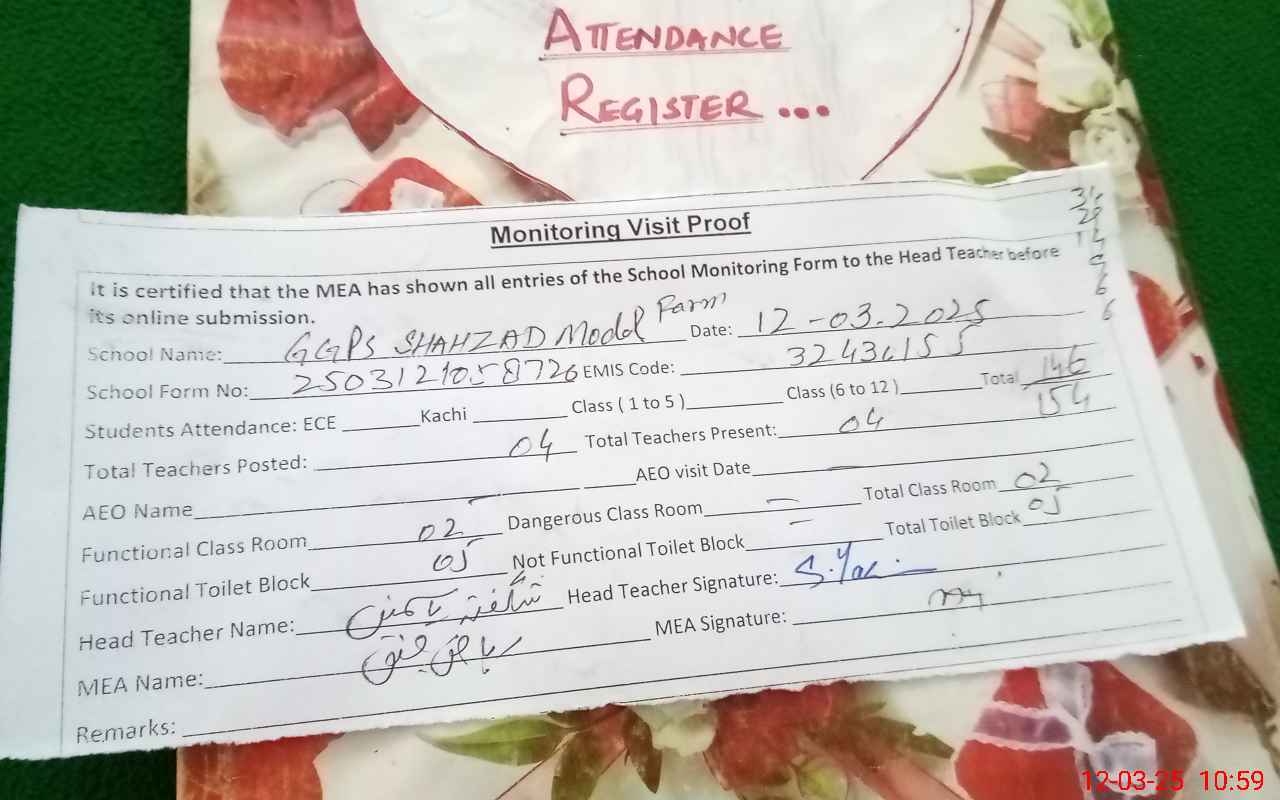 ATTENDANCE
REGISTER ...
Monitoring Visit Proof
It is certified that the MEA has shown all entries of the School Monitoring Form to the Head Teacher before
its online submission.
School Name: GGPS SHAHZAD Model Farm Date: 12-03-2025
School Form No: 2503121058726 EMIS Code:
Students Attendance: ECE Kachi Class ( 1 to 5 ) Class (6 to 12 ) Total 146
154
Total Teachers Posted: 04 Total Teachers Present: 04
AEO Name AEO visit Date
Functional Class Room 02 Dangerous Class Room Total Class Room 02
Functional Toilet Block 05 Not Functional Toilet Block Total Toilet Block 05
Head Teacher Name: شگفتہ یاسمین Head Teacher Signature:
MEA Name: MEA Signature:
Remarks:
12-03-25 10:59